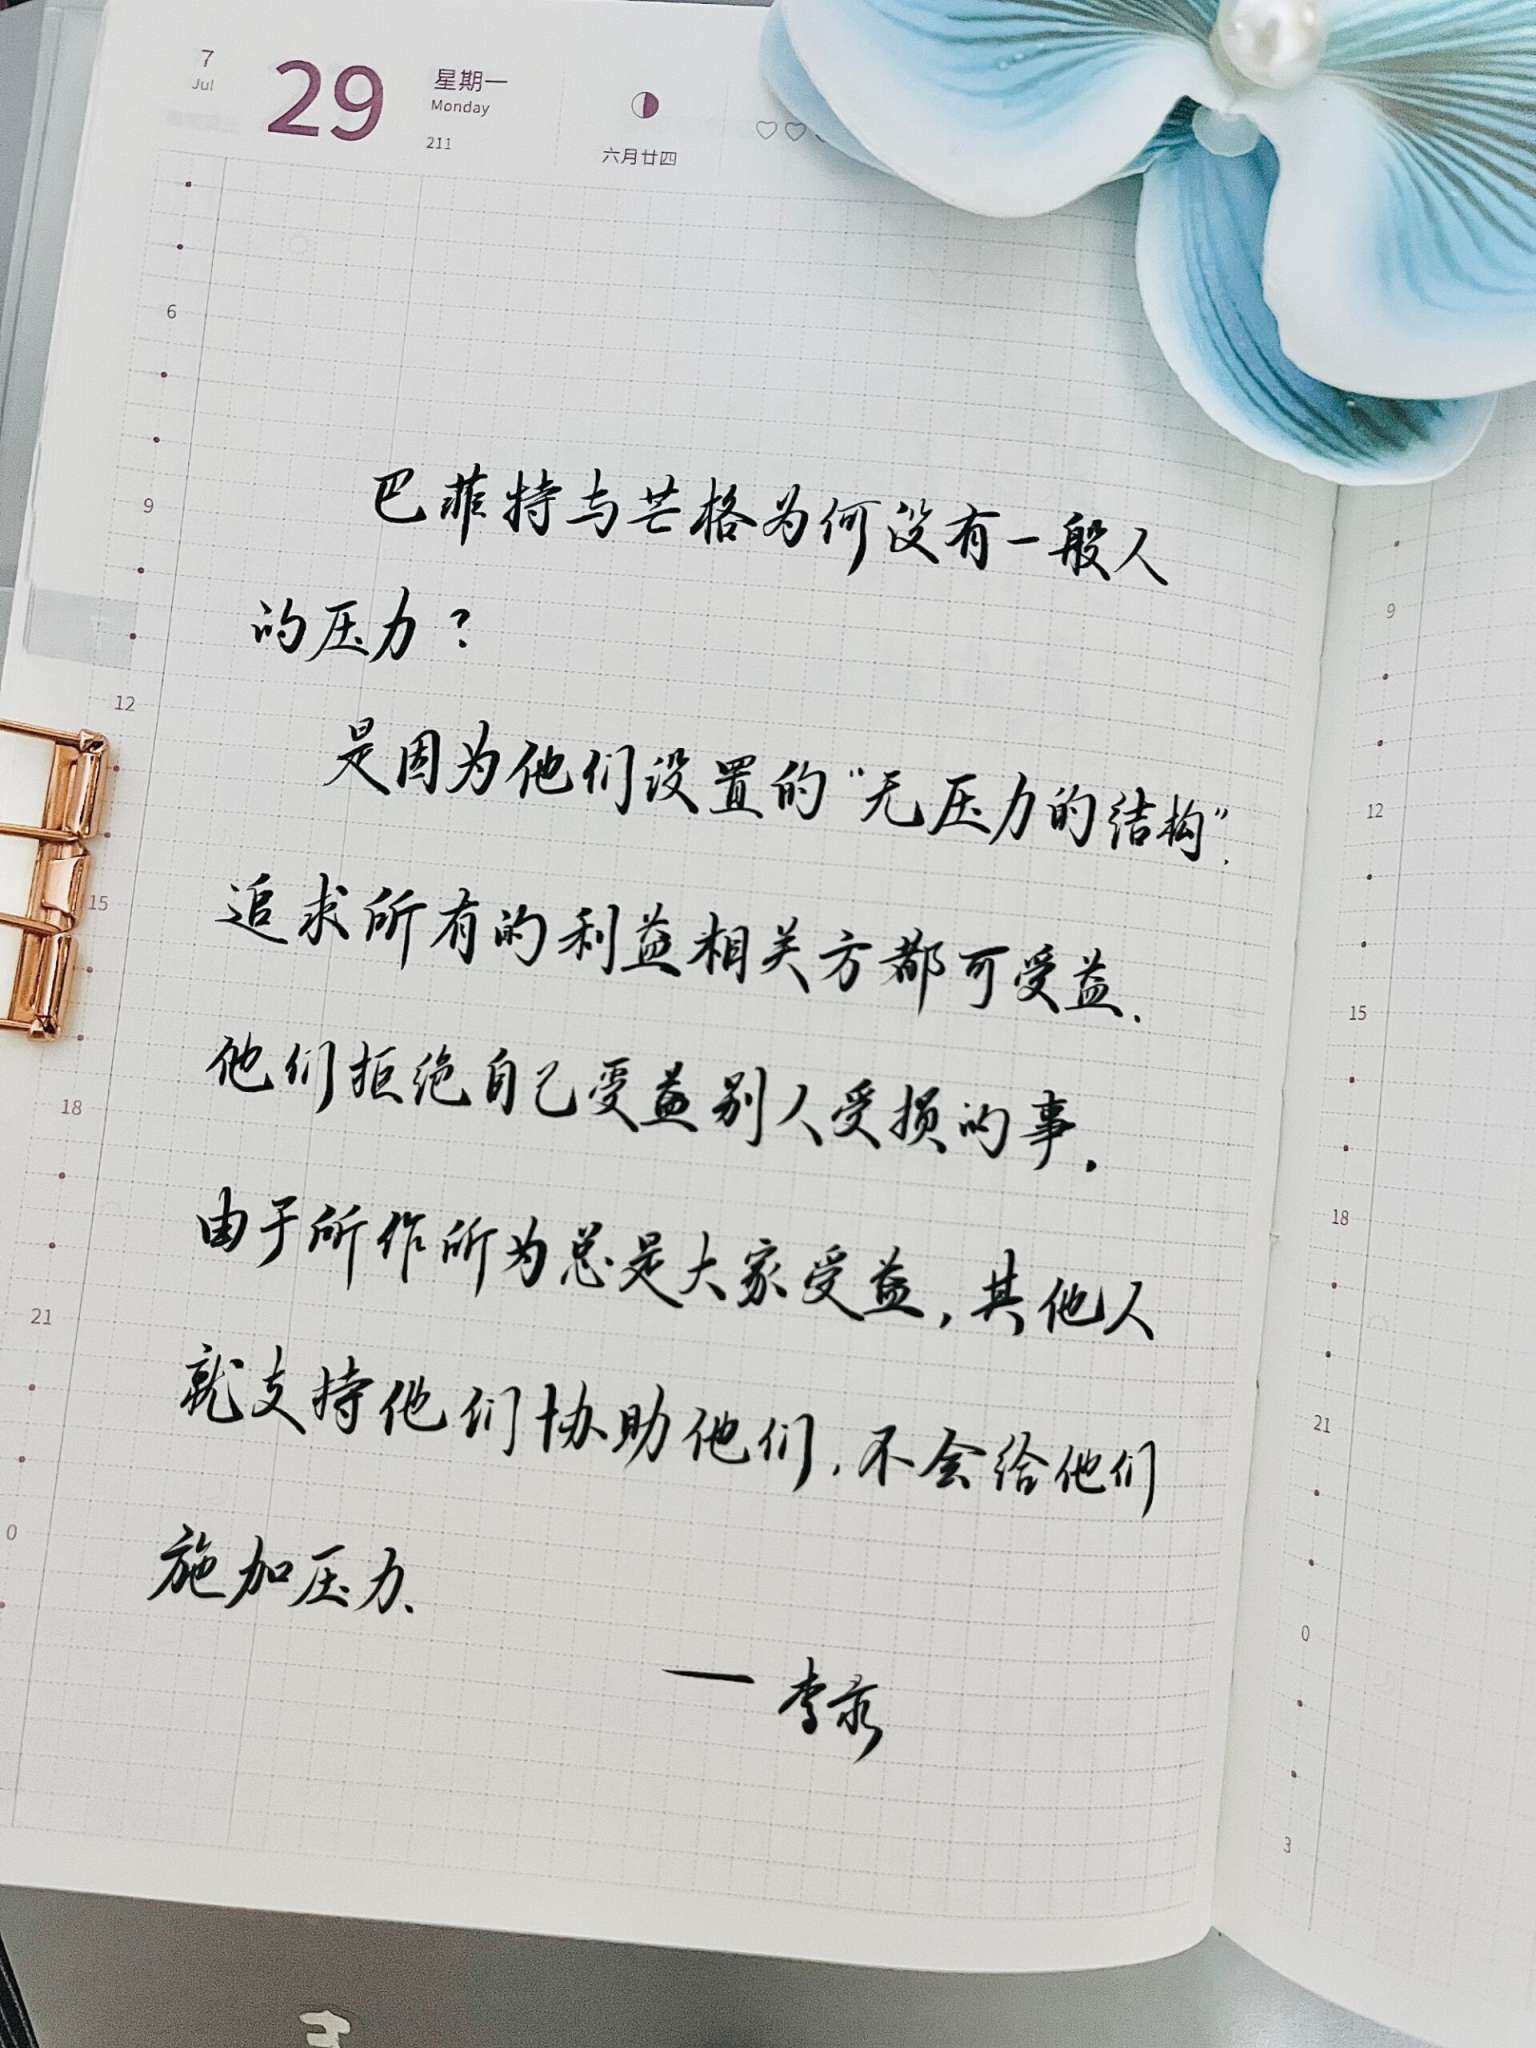 7
Jul
29
星期一
Monday
211
六月廿四
巴菲特与芒格为何没有一般人
的压力？
是因为他们设置的“无压力的结构”.
追求所有的利益相关方都可受益.
他们拒绝自己受益别人受损的事.
由于所作所为总是大家受益,其他人
就支持他们协助他们,不会给他们
施加压力.
— 李录
6
9
12
15
18
21
0
9
12
15
18
21
0
3